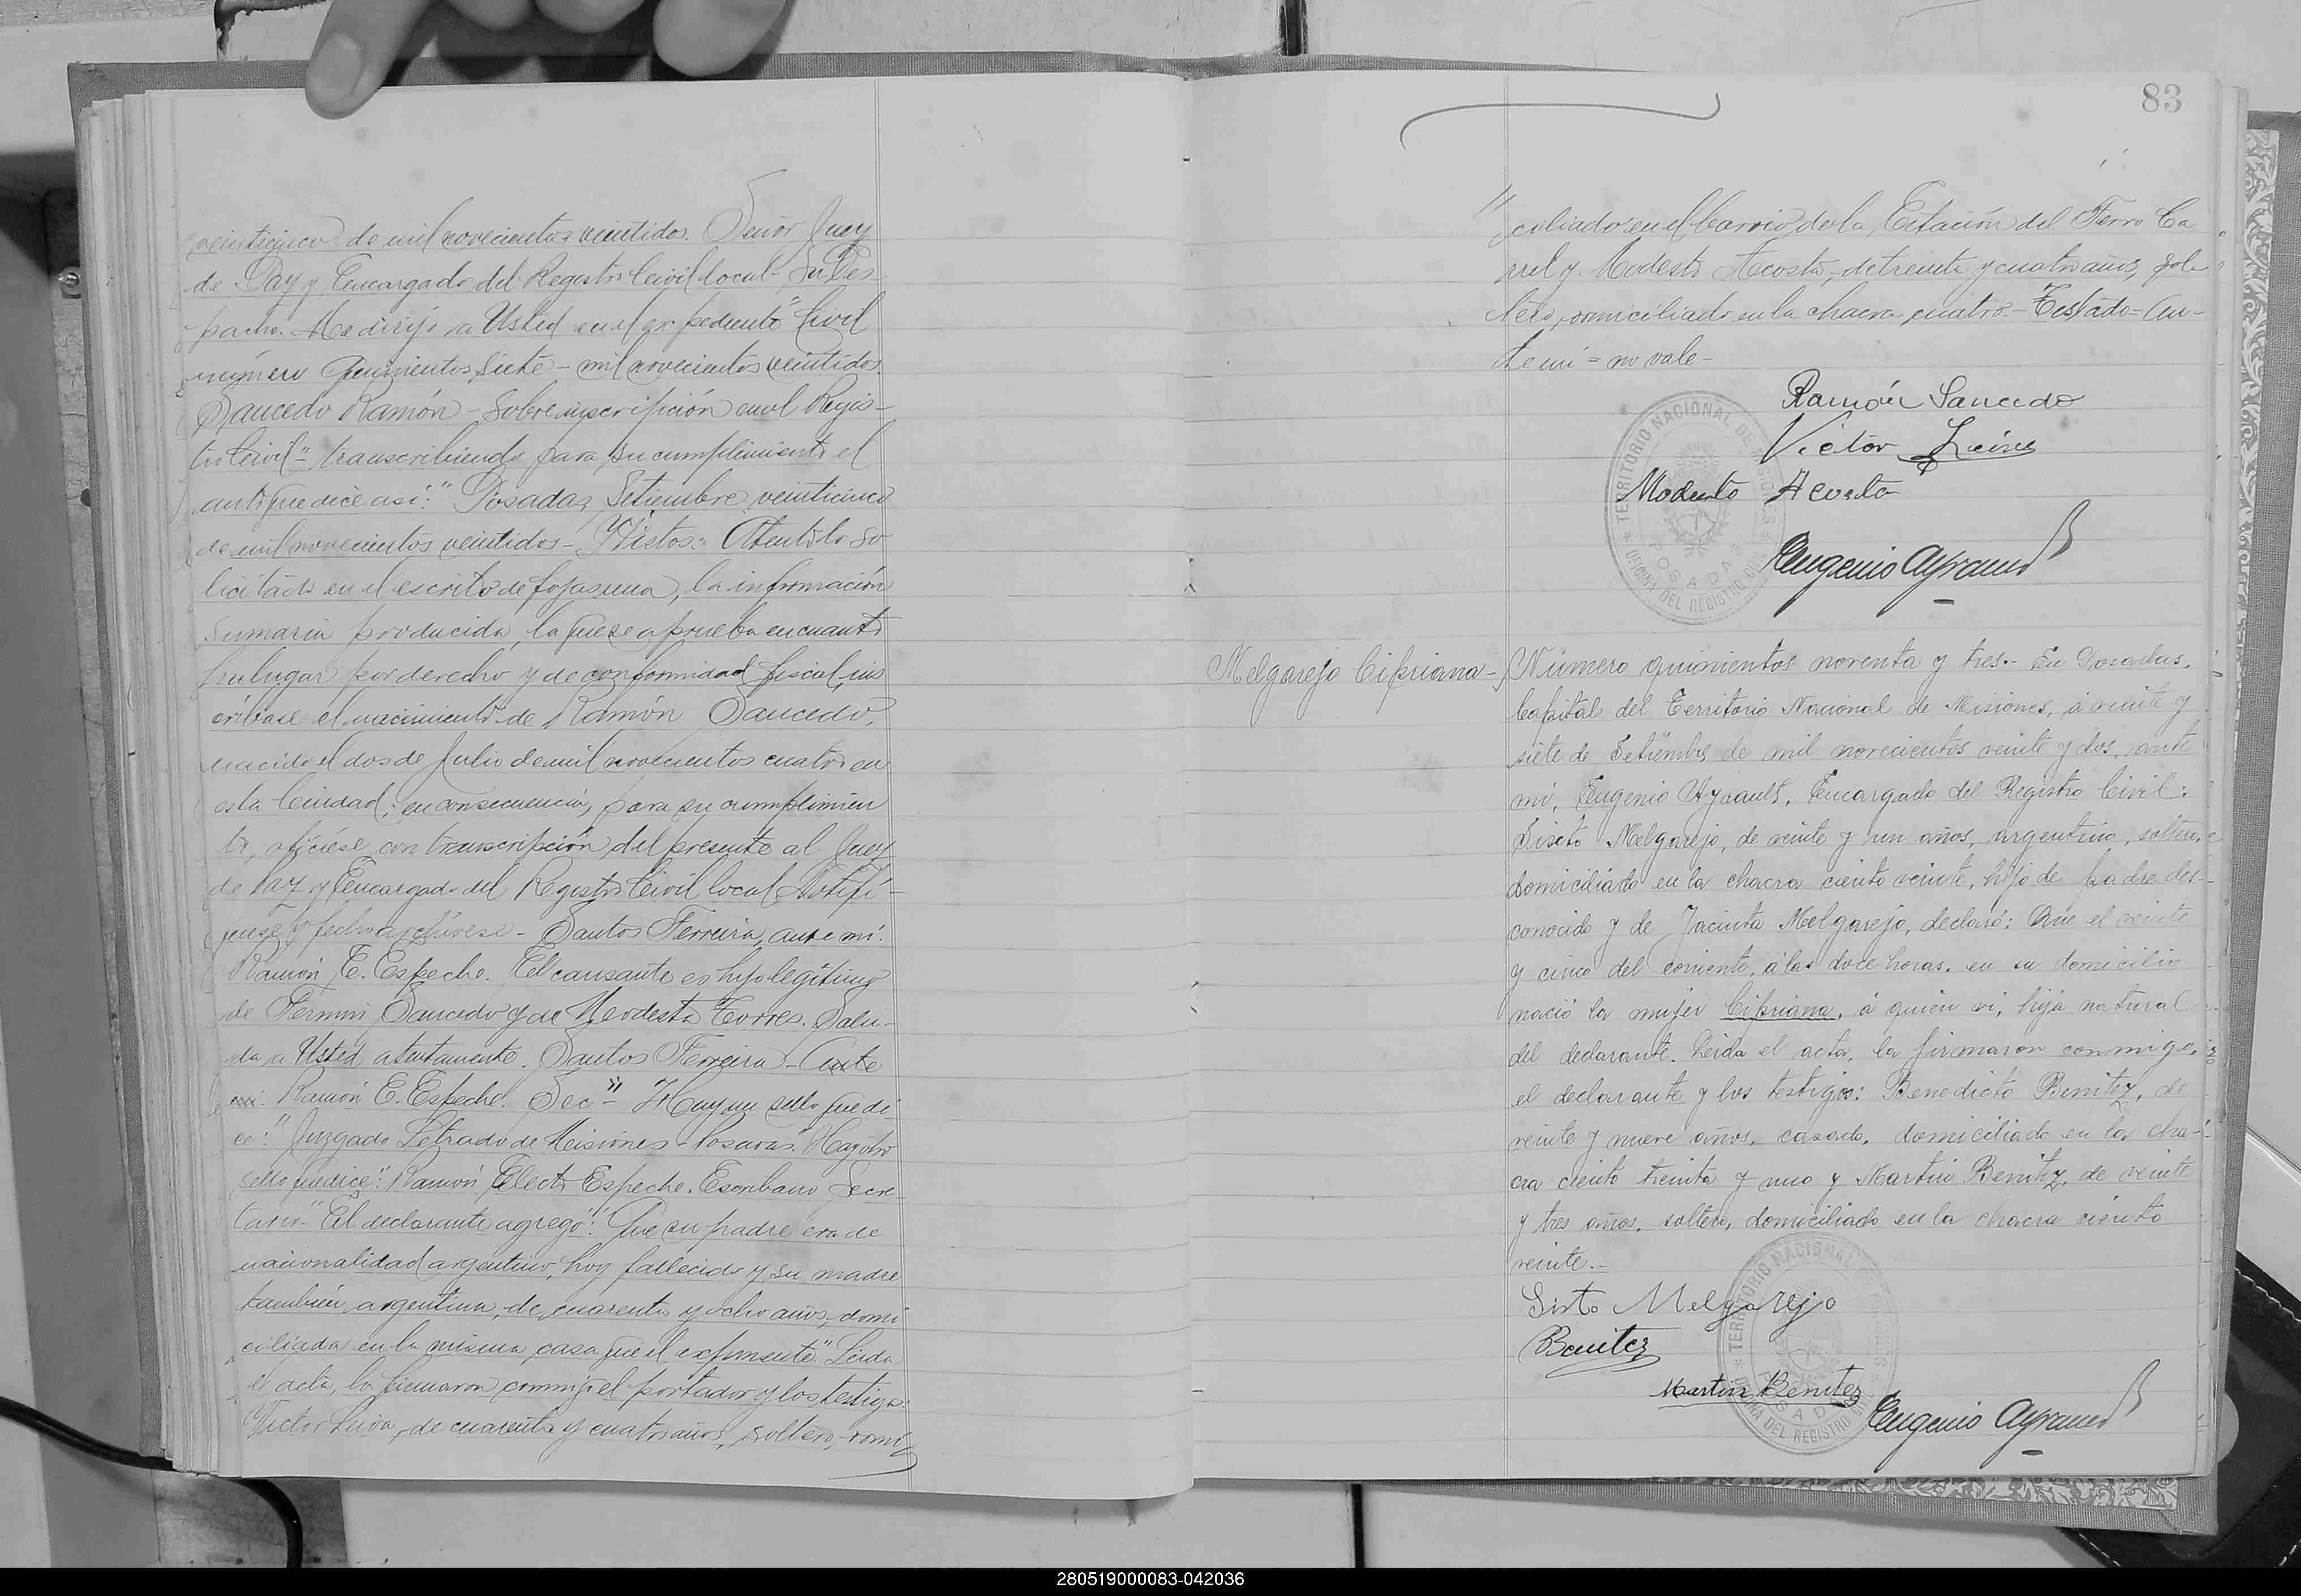 veinticinco de mil novecientos veintidos. Señor Juez
de Paz y Encargado del Registro Civil local. Su Des-
pacho. Me dirijo a Usted en el expediente "Civil
número Quinientos siete - mil novecientos veintidos.
Saucedo Ramón - Sobre inscripción en el Regis-
tro Civil" - transcribiendo para su cumplimiento el
auto que dice así: "Posadas, Setiembre veinticinco
de mil novecientos veintidos - Vistos: Atento lo so
licitado en el escrito de fojas una, la información
sumaria producida, la que se aprueba en cuanto
ha lugar por derecho y de conformidad fiscal, ins
críbase el nacimiento de Ramón Saucedo,
nacido el dos de Julio de mil novecientos cuatro en
esta Ciudad; en consecuencia, para su cumplimien
to, ofíciese con transcripción del presente al Juez
de Paz y Encargado del Registro Civil local. Notifí-
quese y fecho archívese - Santos Ferreira, ante mí:
Ramón E. Espeche. El causante es hijo legítimo
de Fermin Saucedo y de Modesta Torres. Salu-
da a Usted atentamente. Santos Ferreira - Ante
mí: Ramón E. Espeche. Sec" - Hay un sello que di
ce: "Juzgado Letrado de Misiones - Posadas". Hay otro
sello que dice: "Ramón Electo Espeche. Escribano Secre-
tario" - El declarante agregó: "Que su padre era de
nacionalidad argentino, hoy fallecido y su madre
también argentina, de cuarenta y ocho años, domi
ciliada en la misma casa que el exponente." Leida
el acta, la firmaron conmigo el portador y los testigos:
Victor Leiva, de cuarenta y cuatro años, soltero, domi
83
ciliado en el barrio de la Estación del Ferro Ca
rril y Modesto Acosta, de treinta y cuatro años, sol
tero, domiciliado en la chacra cuatro. - Testado = An-
te mí = no vale -
Ramón Saucedo
Victor Leiva
Modesto Acosta
TERRITORIO NACIONAL DE MISIONES
POSADAS
OFICINA DEL REGISTRO CIVIL
Eugenio Ayrault
Melgarejo Cipriana - Número quinientos noventa y tres. - En Posadas,
Capital del Territorio Nacional de Misiones, á veinte y
siete de Setiembre de mil novecientos veinte y dos, ante
mí, Eugenio Ayrault, Encargado del Registro Civil:
Sisto Melgarejo, de veinte y un años, argentino, soltero,
domiciliado en la chacra ciento veinte, hijo de padre des-
conocido y de Jacinta Melgarejo, declaró: Que el veinte
y cinco del corriente, á las doce horas, en su domicilio
nació la mujer Cipriana, á quien vi, hija natural
del declarante. Leida el acta, la firmaron conmigo,
el declarante y los testigos: Benedicto Benitez, de
veinte y nueve años, casado, domiciliado en la cha-
cra ciento treinta y uno y Martin Benitez, de veinte
y tres años, soltero, domiciliado en la chacra ciento
veinte. -
Sisto Melgarejo
Benitez
Martin Benitez
TERRITORIO NACIONAL DE MISIONES
POSADAS
OFICINA DEL REGISTRO CIVIL
Eugenio Ayrault
280519000083-042036